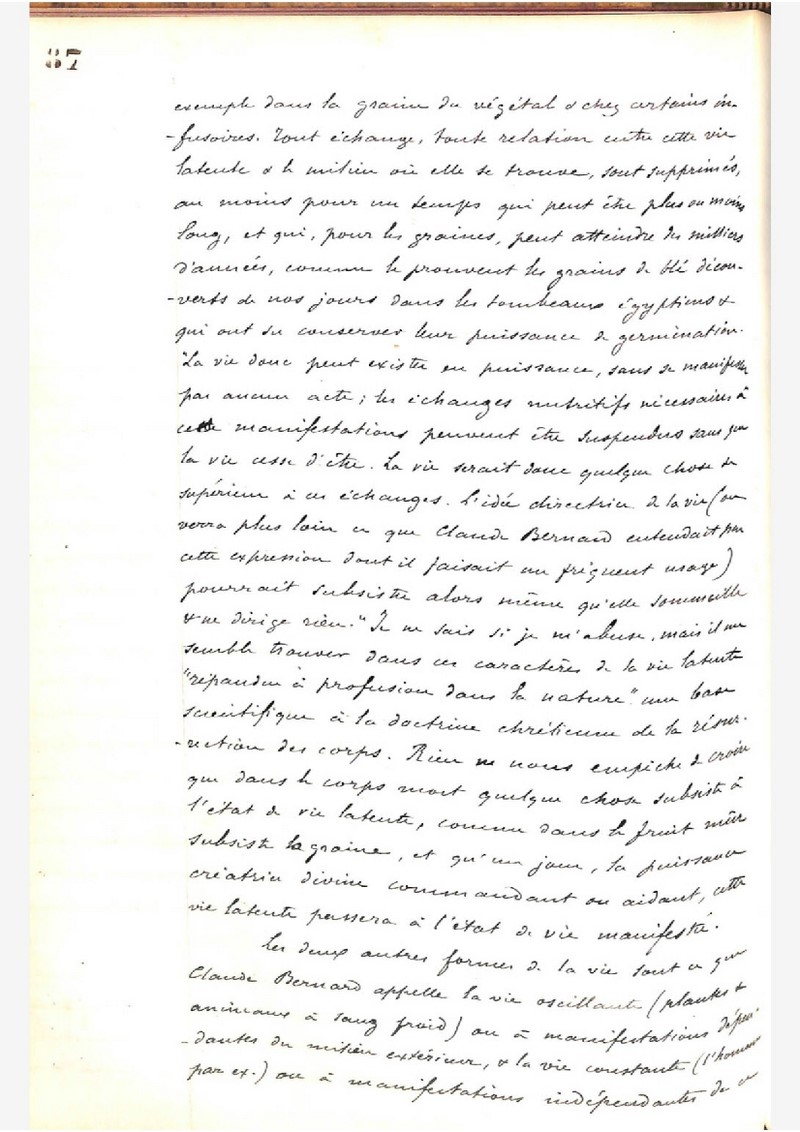 87
exemple dans la graine du végétal & chez certains in-
-fusoires. Tout échange, toute relation entre cette vie
latente & le milieu où elle se trouve, sont supprimés,
au moins pour un temps qui peut être plus ou moins
long, et qui, pour les graines, peut atteindre des milliers
d'années, comme le prouvent les grains de blé décou-
-verts de nos jours dans les tombeaux égyptiens &
qui ont su conserver leur puissance de germination.
"La vie donc peut exister en puissance, sans se manifester
par aucun acte; les échanges nutritifs nécessaires à
cette manifestations peuvent être suspendus sans que
la vie cesse d'être. La vie serait donc quelque chose de
supérieur à ces échanges. L'idée directrice de la vie (on
verra plus loin ce que Claude Bernard entendait par
cette expression dont il faisait un fréquent usage)
pourrait subsister alors même qu'elle sommeille
& ne dirige rien." Je ne sais si je m'abuse, mais il me
semble trouver dans ces caractères de la vie latente
"répandue à profusion dans la nature" une base
scientifique à la doctrine chrétienne de la résur-
-rection des corps. Rien ne nous empêche de croire
que dans le corps mort quelque chose subsiste à
l'état de vie latente, comme dans le fruit mûr
subsiste la graine, et qu'un jour, la puissance
créatrice divine commandant ou aidant, cette
vie latente passera à l'état de vie manifesté.
Les deux autres formes de la vie sont ce que
Claude Bernard appelle la vie oscillante (plantes &
animaux à sang froid) ou à manifestations dépen-
-dantes du milieu extérieur, & la vie constante (l'homme
par ex.) ou à manifestations indépendantes de ce